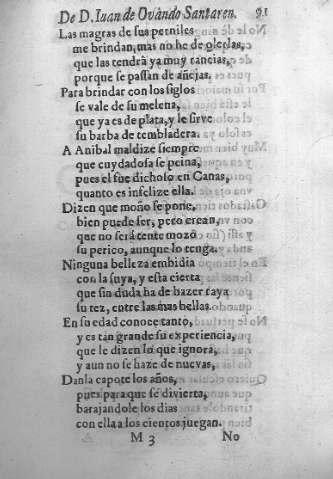 De D. Iuan de Ovàndo Santaren. 91
Las magras de sus perniles
me brindan, mas no he de olerlas,
que las tendrà ya muy rancias,
porque se passan de añejas.
Para brindar con los siglos
se vale de su melena,
que ya es de plata, y le sirve
su barba de tembladera.
A Anibal maldize siempre
que cuydadosa se peina,
pues el fue dichoso en Canas,
quanto es infelize ella.
Dizen que moño se pone,
bien puede ser, pero crean,
que no serà tente mozo
su perico, aunque lo tenga.
Ninguna belleza embidia
con la suya, y està cierta
que sin duda ha de hazer raya
su tez, entre las mas bellas.
En su edad conoce tanto,
y es tan grande su experiencia,
que le dizen lo que ignora,
y aun no se haze de nuevas,
Danla capote los años,
pues para que se divierta,
barajandole los dias
con ella a los cientos juegan.
M 3 No